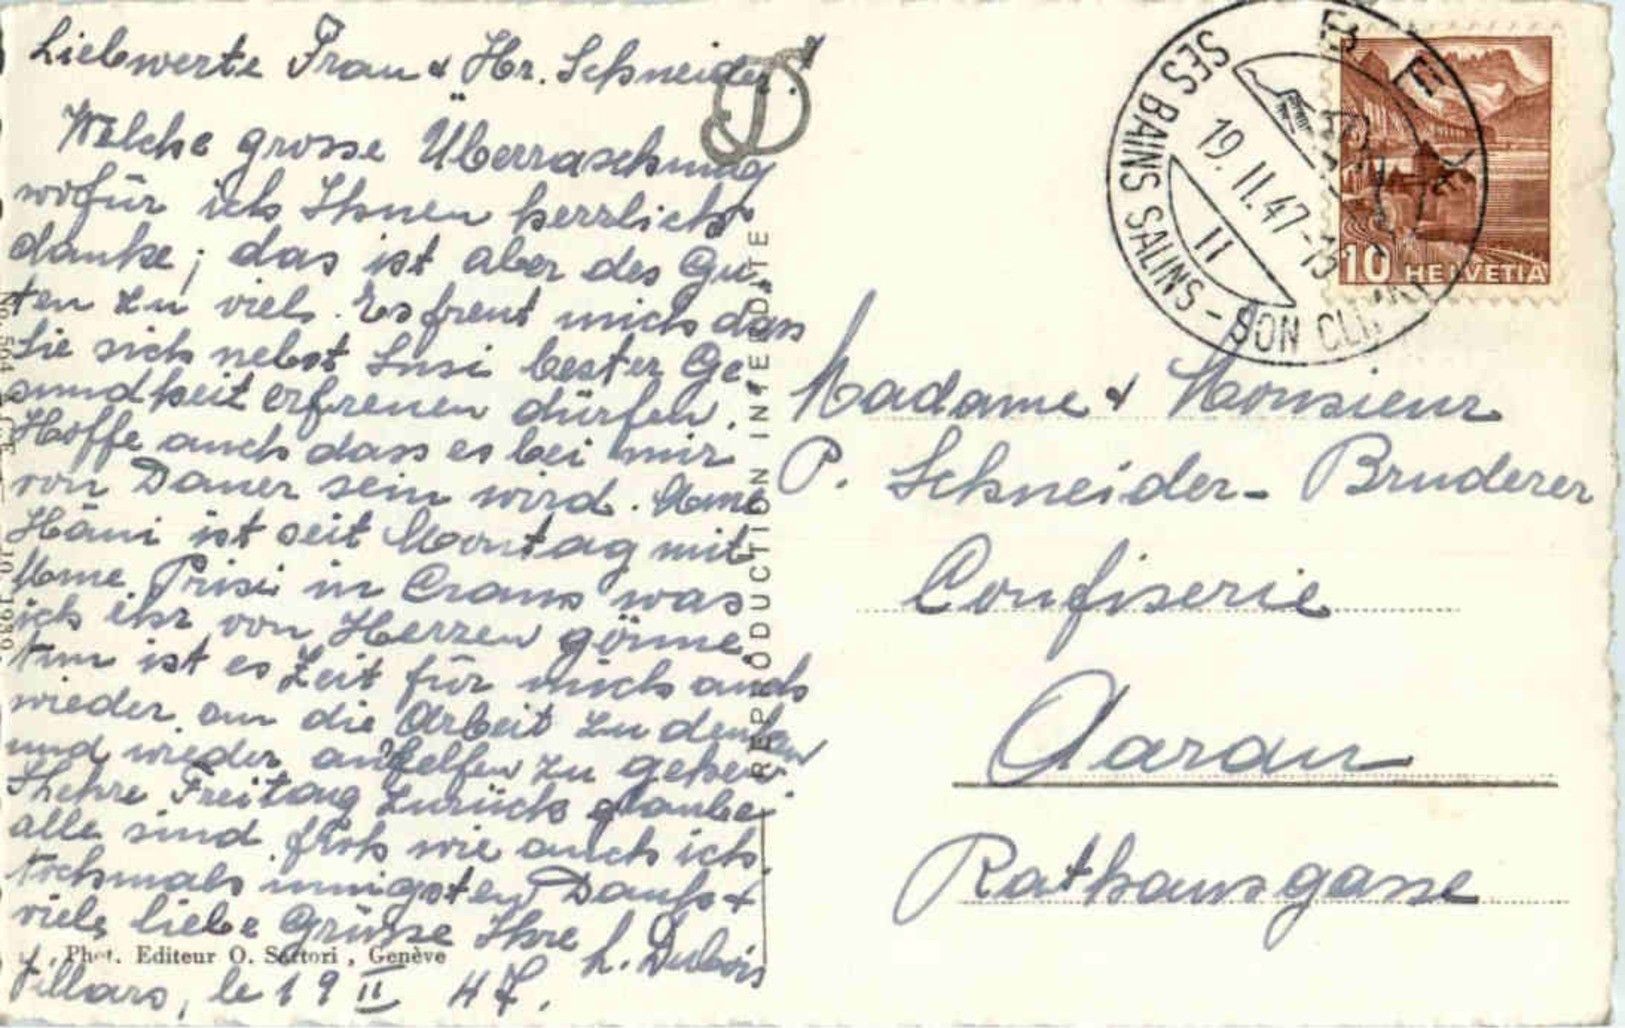 Liebwerte Frau & Hr. Schneider!
Welche grosse Überraschung
wofür ich Ihnen herzlich
danke; das ist aber des Gu-
ten zu viel. Es freut mich dass
Sie sich nebst Susi bester Ge-
sundheit erfreuen dürfen.
Hoffe auch dass es bei mir
von Dauer sein wird. Mme
Häni ist seit Montag mit
Mme Prisi in Crans was
ich ihr von Herzen gönne.
Nun ist es Zeit für mich auch
wieder an die Arbeit zu denken
und wieder zu gehen.
Kehre Freitag zurück glaube
alle sind froh wie auch ich.
Nochmals innigsten Dank +
viele liebe Grüsse Ihre
L. Dubois
Villars, le 19 II 47.
Phot. Editeur O. Sartori, Genève
REPRODUCTION INTERDITE
SES BAINS SALINS - SON CLIMAT
19. II. 47 - 15
II
10 HELVETIA
Madame & Monsieur
P. Schneider-Bruderer
Confiserie
Aarau
Rathausgasse